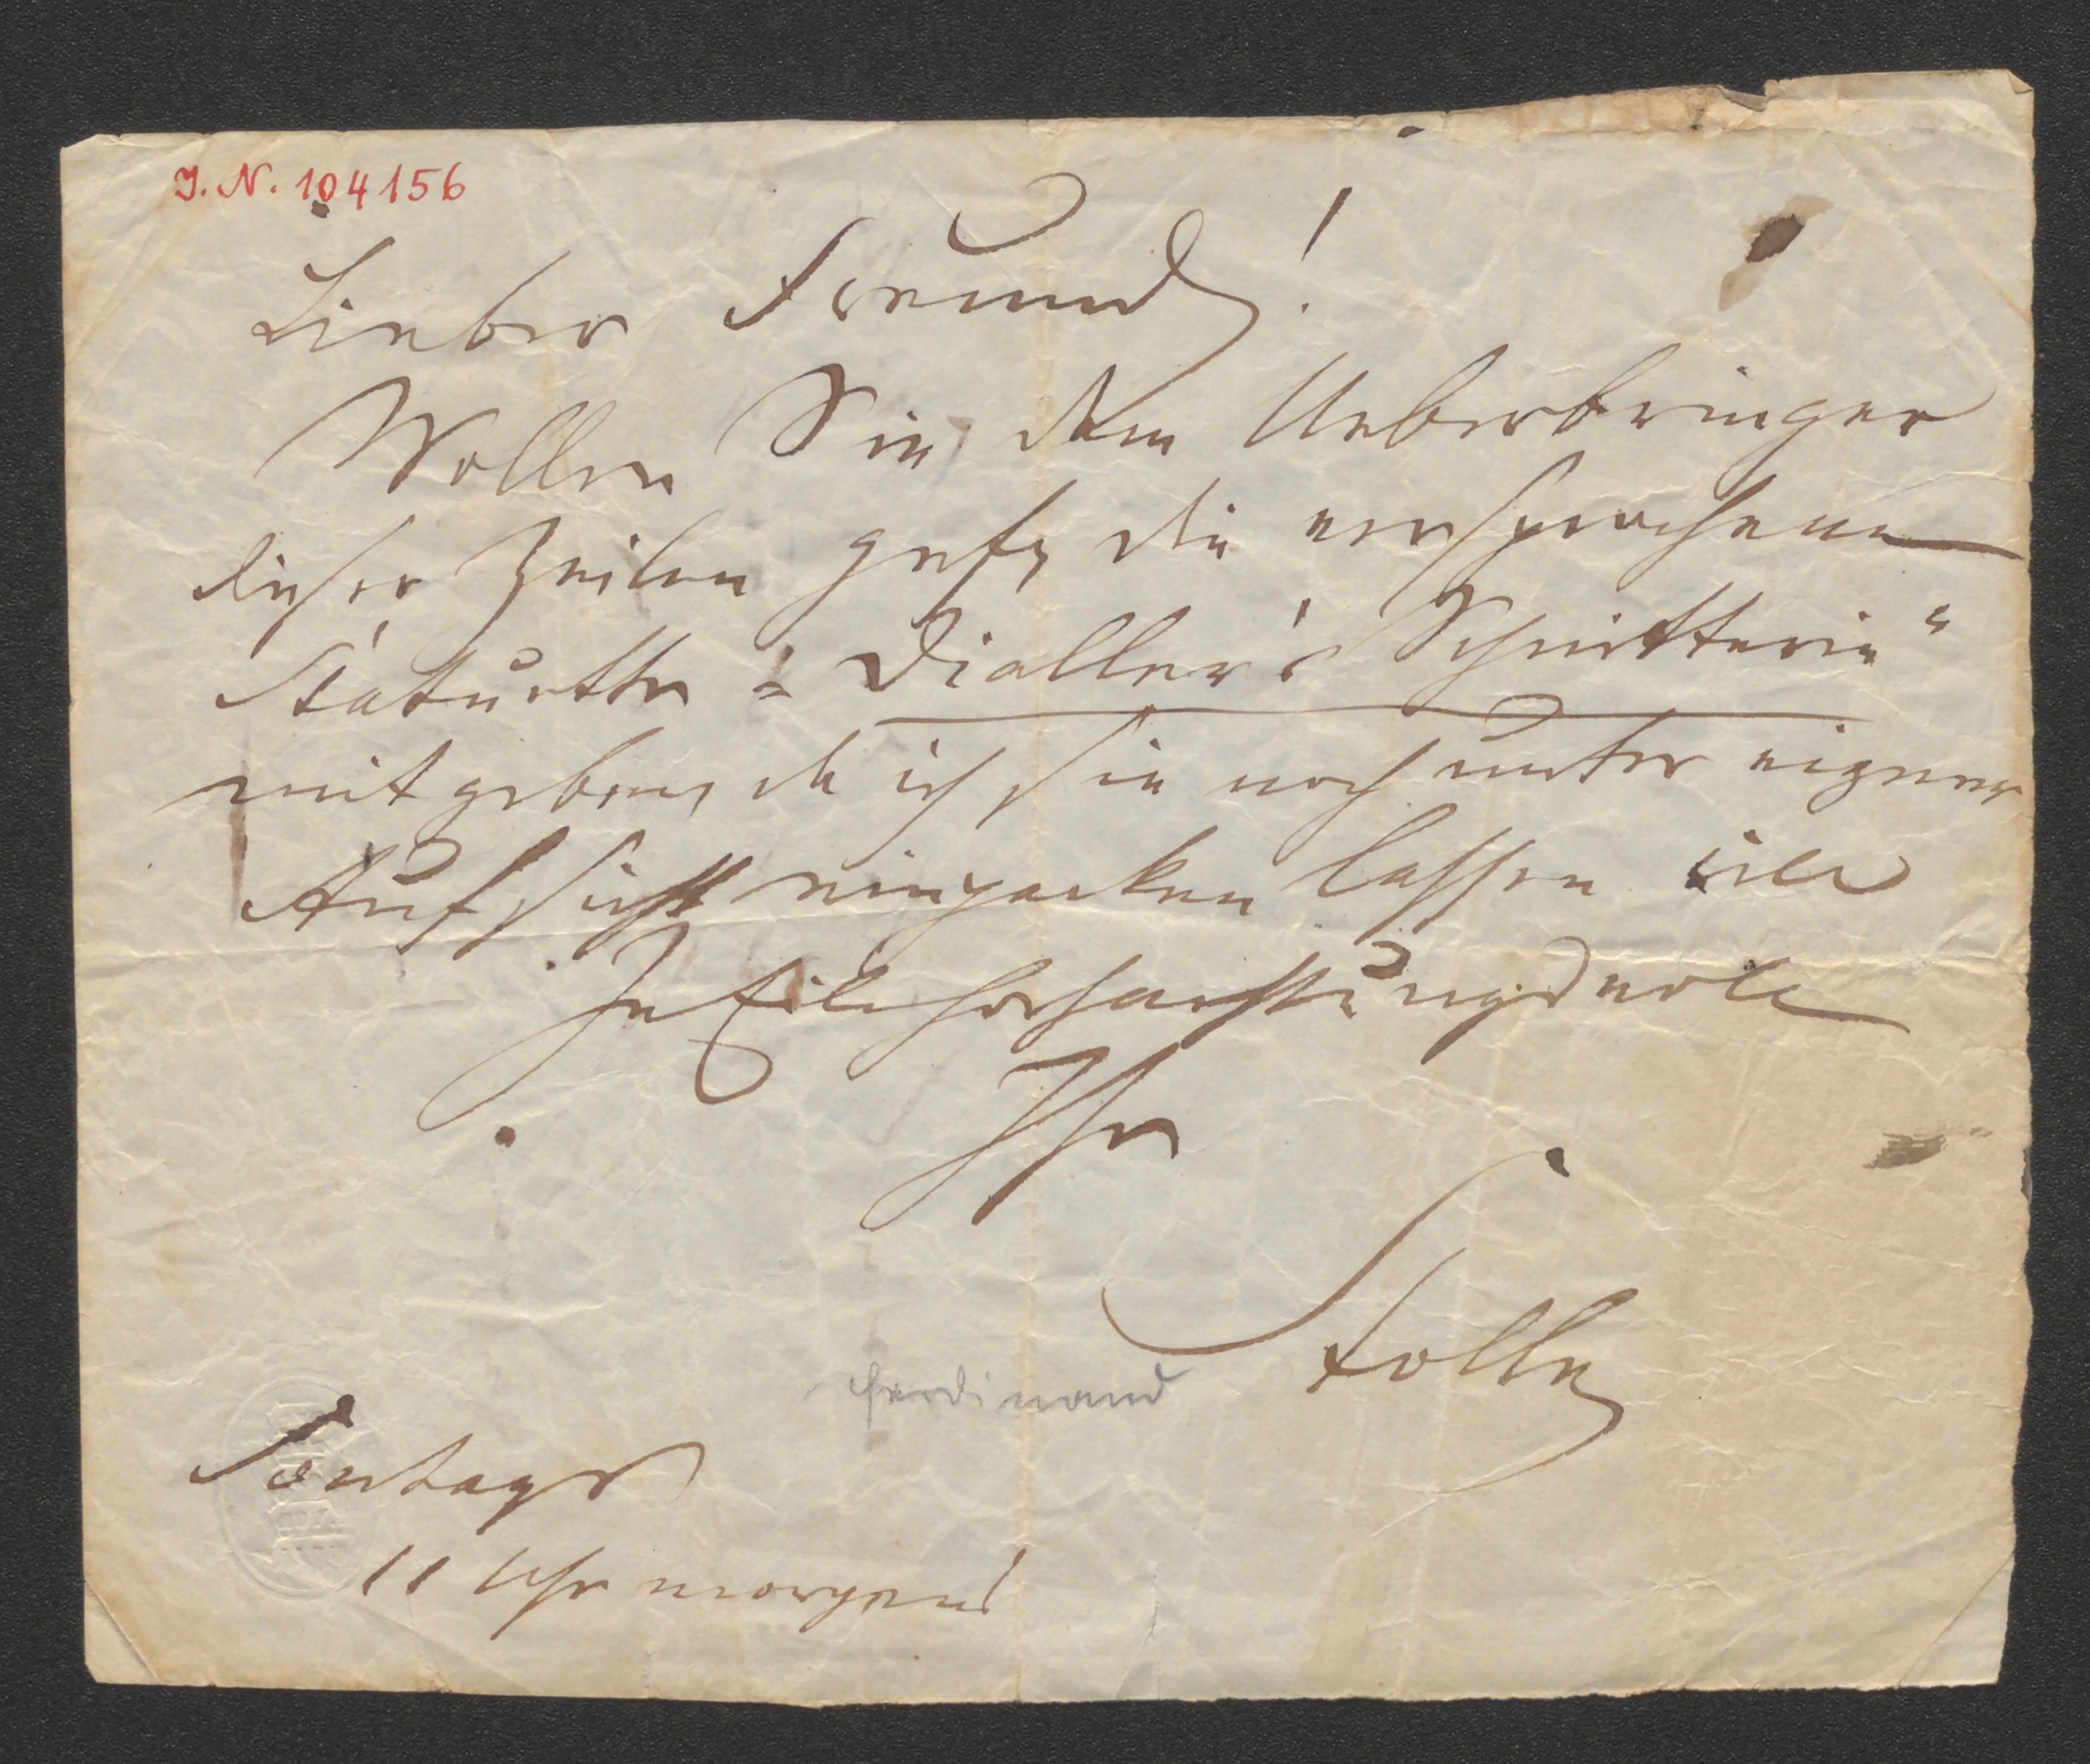 J. N. 104156
Lieber Freund!
Wollen Sie dem Ueberbringer
dieser Zeilen gefl die versprochene
Statuette = Dialler's Schnitterin"
mitgeben, da ich sie noch unter eigener
Aufsicht einpacken lassen will
In Eile hochachtungsvoll
Ihr
Stolle
Ferdinand
Sontags
11 Uhr morgens